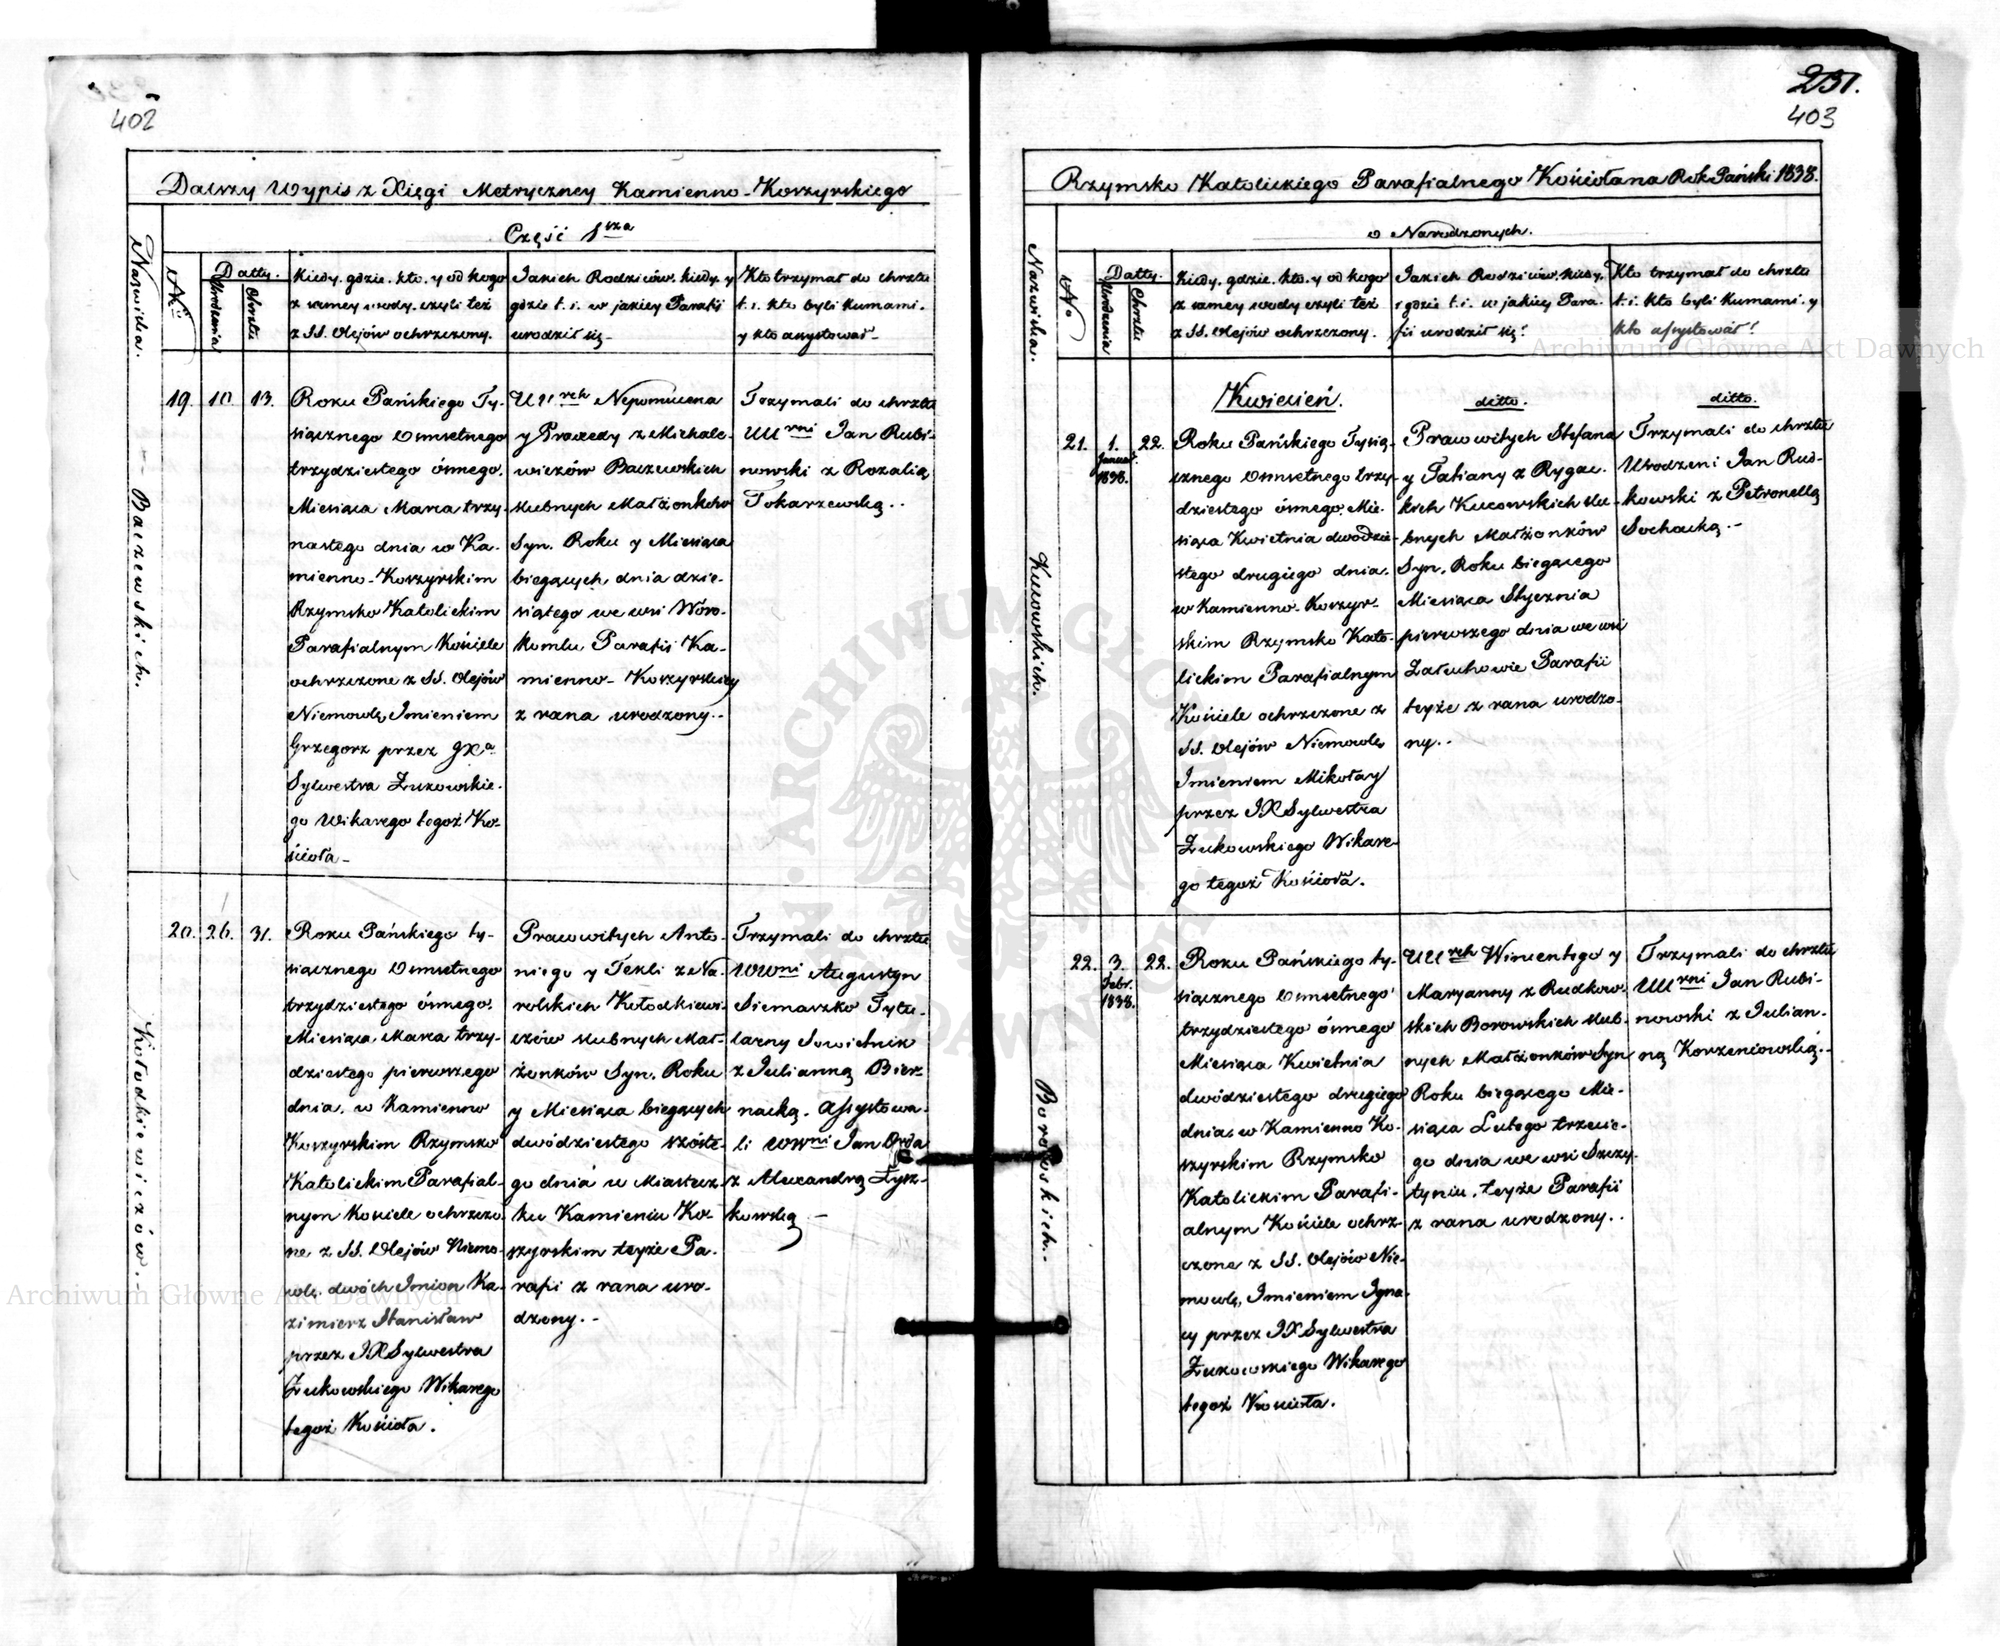 402
Dalszy Wypis z Xięgi Metryczney Kamienno-Koszyrskiego
Część 1sza
Nazwiska.
Nro
Datty.
Urodzenia
Chrztu
Kiedy, gdzie, kto, y od kogo
z samey wody, czyli też
z SS. Olejów ochrzczony.
Jakich Rodziców, kiedy, y
gdzie t. i. w jakiey Parafii
urodził się.
Kto trzymał do chrztu
t. i. kto byli Kumami.
y kto asystował.
Baczewskich.
19.
10.
13.
Roku Pańskiego Ty-
siącznego Osmsetnego
trzydziestego ósmego.
Miesiąca Marca trzy-
nastego dnia w Ka-
mienno-Koszyrskim
Rzymsko Katolickim
Parafialnym Kościele
ochrzczone z SS. Olejów
Niemowlę, Imieniem
Grzegorz przez JXa
Sylwestra Żukowskie-
go Wikarego tegoż Ko-
ścioła -
UUrch Nepomucena
y Praxedy z Michale-
wiczów Baczewskich
slubnych Małżonków
Syn. Roku y Miesiąca
biegących, dnia dzie-
siątego we wsi Woro-
komlu Parafii Ka-
mienno-Koszyrskiey
z rana urodzony.-
Trzymali do chrztu
UUrni Jan Rubi-
nowski z Rozalią
Tokarzewską.
Kołodkiewiczów.-
20.
26.
31.
Roku Pańskiego ty-
siącznego Osmsetnego
trzydziestego ósmego.
Miesiąca Marca trzy-
dziestego pierwszego
dnia, w Kamienno
Koszyrskim Rzymsko
Katolickim Parafial-
nym Kościele ochrzczo-
ne z SS. Olejów Niemo-
wlę, dwóch Imion Ka-
zimierz Stanisław
przez JX Sylwestra
Żukowskiego Wikarego
tegoż Kościoła.
Prawowitych Anto-
niego y Tekli z Na-
rolskich Kołodkiewi-
czów slubnych Mał-
żonków Syn. Roku
y Miesiąca biegących
dwódziestego szóste-
go dnia w Miastecz-
ku Kamieniu Ko-
szyrskim teyże Pa-
rafii z rana uro-
dzony.-
Trzymali do chrztu
WWni Augustyn
Siemaszko Tytu-
larny Sowietnik
z Julianną Bier-
nacką. Assystowa-
li WWni Jan Orda
z Alexandrą Łysz-
kowską -
231.
403
Rzymsko Katolickiego Parafialnego Kościoła na Rok Pański 1838.
o Narodzonych.
Nazwiska.
No
Datty.
Urodzenia
Chrztu
Kiedy, gdzie, kto, y od kogo
z samey wody czyli też
z SS. Olejów ochrzczony.
Jakich Rodziców, kiedy,
y gdzie t. i. w jakiey Para-
fii urodził się?
Kto trzymał do chrztu
t. i. kto byli Kumami. y
kto assystował?
Kwiecień.
ditto.
ditto.
Kucowskich.
21.
1.
Januar.
1838.
22.
Roku Pańskiego Tysią-
cznego Osmsetnego trzy-
dziestego ósmego, Mie-
siąca Kwietnia dwódzie-
stego drugiego dnia.
w Kamienno-Koszyr-
skim Rzymsko Kato-
lickim Parafialnym
Kościele ochrzczone z
SS. Olejów Niemowlę
Imieniem Mikołay
przez JX Sylwestra
Żukowskiego Wikare-
go tegoż Kościoła.
Prawowitych Stefana
y Tatiany z Rygac-
kich Kucowskich slu-
bnych Małżonków
Syn. Roku biegącego
Miesiąca Stycznia
pierwszego dnia we wsi
Załuchowie Parafii
teyże z rana urodzo-
ny.-
Trzymali do chrztu
Urodzeni Jan Rud-
kowski z Petronellą
Sochacką.-
Borowskich.-
22.
3.
Febr.
1838.
22.
Roku Pańskiego ty-
siącznego Osmsetnego
trzydziestego ósmego
Miesiąca Kwietnia
dwódziestego drugiego
dnia, w Kamienno Ko-
szyrskim Rzymsko
Katolickim Parafi-
alnym Kościele ochrz-
czone z SS. Olejów Nie-
mowlę, Imieniem Igna-
cy przez JX Sylwestra
Żukowskiego Wikarego
tegoż Kościoła.
UUrch Wincentego y
Maryanny z Rudkow-
skich Borowskich slub-
nych Małżonków Syn
Roku biegącego Mie-
siąca Lutego trzecie-
go dnia we wsi Szczy-
tyniu, teyże Parafii
z rana urodzony.
Trzymali do chrztu
UUrni Jan Rubi-
nowski z Julian-
ną Korzeniowską.-
Archiwum Główne Akt Dawnych
Archiwum Główne Akt Dawnych
ARCHIWUM GŁÓWNE AKT DAWNYCH